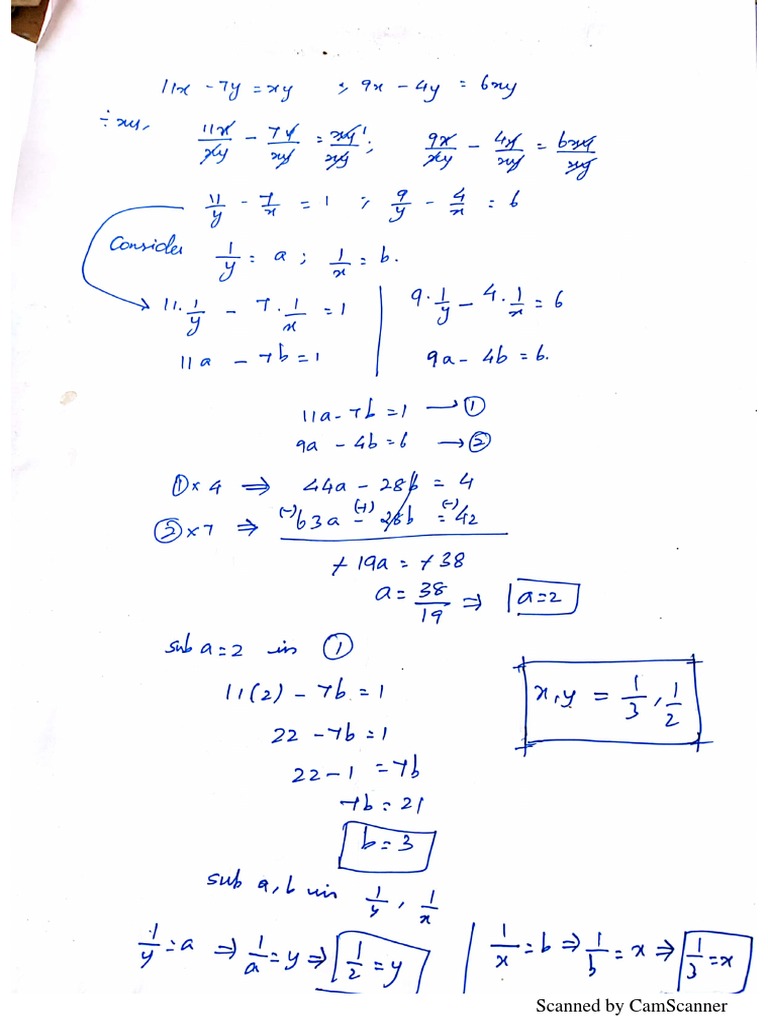 11x - 7y = xy ; 9x - 4y = 6xy
÷ xy, 11x/xy - 7y/xy = xy/xy 1 ; 9x/xy - 4y/xy = 6xy/xy
11/y - 7/x = 1 ; 9/y - 4/x = 6
Consider 1/y = a ; 1/x = b.
11·1/y - 7·1/x = 1 | 9·1/y - 4·1/x = 6
11a - 7b = 1 | 9a - 4b = 6.
11a - 7b = 1 → ①
9a - 4b = 6 → ②
① × 4 ⇒ 44a - 28b = 4
② × 7 ⇒ (-)63a (+)- 28b = (-)42
+ 19a = + 38
a = 38/19 ⇒ a = 2
sub a = 2 in ①
11(2) - 7b = 1
x, y = 1/3, 1/2
22 - 7b = 1
22 - 1 = 7b
7b = 21
b = 3
sub a, b in 1/y, 1/x
1/y = a ⇒ 1/a = y ⇒ 1/2 = y | 1/x = b ⇒ 1/b = x ⇒ 1/3 = x
Scanned by CamScanner